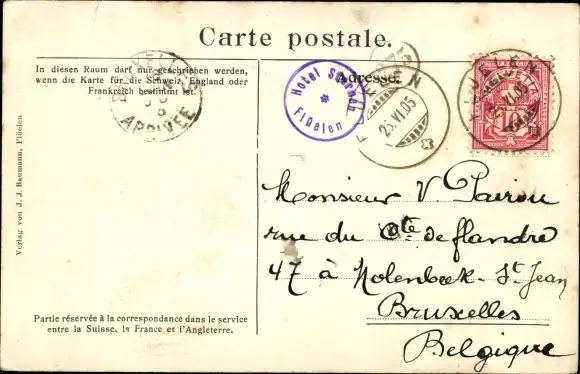 Carte postale.
In diesen Raum darf nur geschrieben werden,
wenn die Karte für die Schweiz, England oder
Frankreich bestimmt ist.
Adresse.
ARRIVÉE
Hotel Sternen
Flüelen
23.VI.05
HELVETIA
10
Verlag von J. J. Baumann, Flüelen
Monsieur V. Pairou
rue du Cte de flandre
47 à Molenbeek-St Jean
Bruxelles
Belgique
Partie réservée à la correspondance dans le service
entre la Suisse, la France et l'Angleterre.